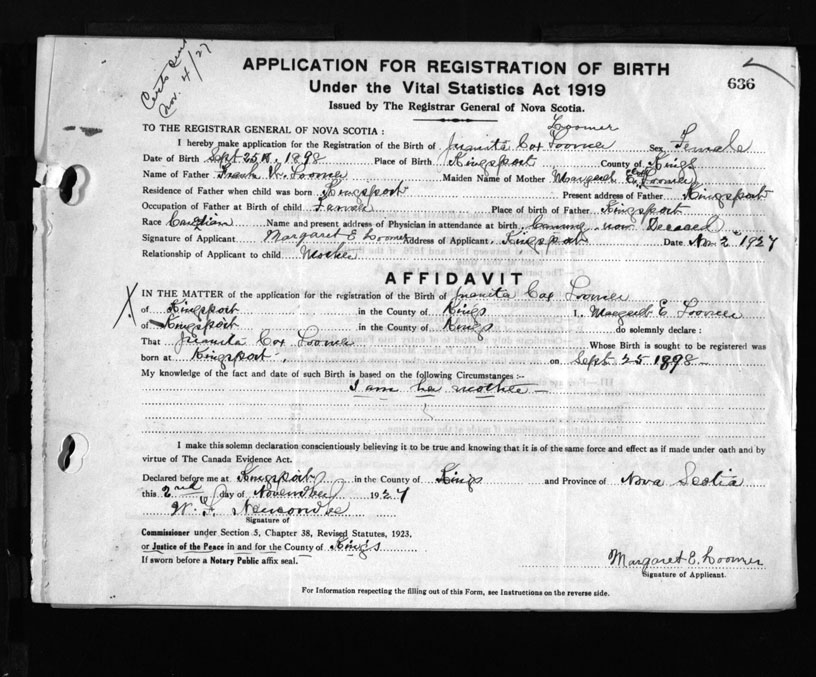 Nov. 4/27
APPLICATION FOR REGISTRATION OF BIRTH
636
Under the Vital Statistics Act 1919
Issued by The Registrar General of Nova Scotia.
Loomer
TO THE REGISTRAR GENERAL OF NOVA SCOTIA :
I hereby make application for the Registration of the Birth of Juanita Cox Loomer Sex Female
Date of Birth Sept 25th, 1898 Place of Birth Kingsport County of Kings
Name of Father Frank Loomer Maiden Name of Mother Margaret E. Loomer
Residence of Father when child was born Kingsport Present address of Father Kingsport
Occupation of Father at Birth of child Farmer Place of Birth of Father Kingsport
Race Canadian Name and present address of Physician in attendance at birth now Deceased
Signature of Applicant Margaret E Loomer Address of Applicant Kingsport Date Nov 2 1927
Relationship of Applicant to child Mother
AFFIDAVIT
X IN THE MATTER of the application for the registration of the Birth of Juanita Cox Loomer
of Kingsport in the County of Kings I, Margaret E. Loomer
of Kingsport in the County of Kings do solemnly declare :
That Juanita Cox Loomer Whose Birth is sought to be registered was
born at Kingsport, on Sept 25 1898
My knowledge of the fact and date of such Birth is based on the following Circumstances :-
I am her mother
I make this solemn declaration conscientiously believing it to be true and knowing that it is of the same force and effect as if made under oath and by
virtue of The Canada Evidence Act.
Declared before me at Kingsport in the County of Kings and Province of Nova Scotia
this 2nd day of November 1927
W. F. Newcombe
Signature of
Commissioner under Section 5, Chapter 38, Revised Statutes, 1923,
or Justice of the Peace in and for the County of Kings
Margaret E. Loomer
If sworn before a Notary Public affix seal.
Signature of Applicant.
For Information respecting the filling out of this Form, see Instructions on the reverse side.